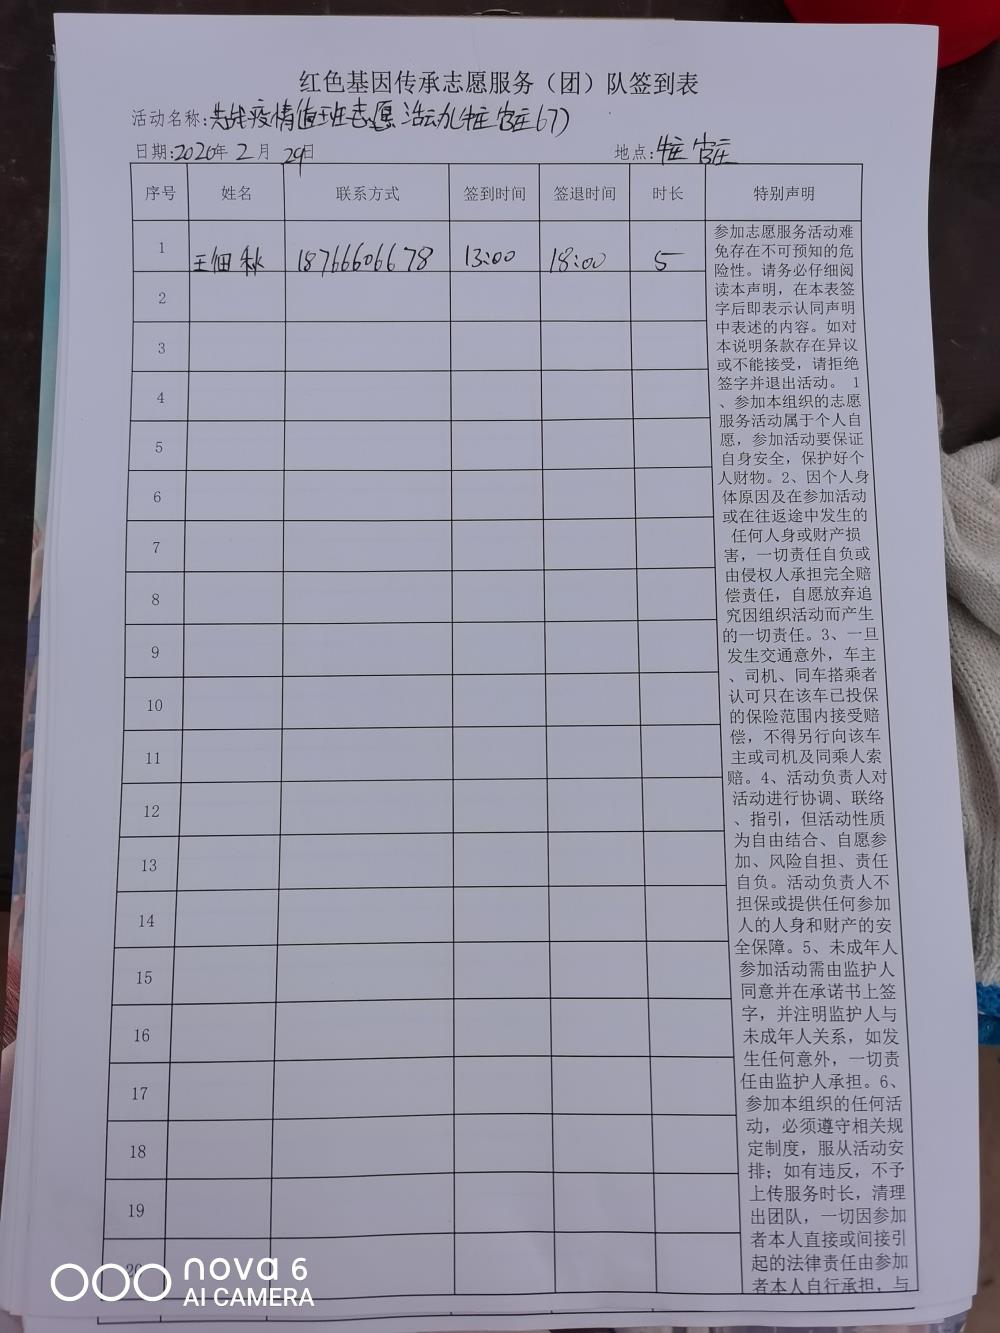 红色基因传承志愿服务（团）队签到表
活动名称:战疫情值班志愿活动(官庄67)
日期:2020年2月29日 地点:官庄
序号 姓名 联系方式 签到时间 签退时间 时长 特别声明
1 王佃秋 18766606678 13:00 18:00 5
2
3
4
5
6
7
8
9
10
11
12
13
14
15
16
17
18
19
20
参加志愿服务活动难
免存在不可预知的危
险性。请务必仔细阅
读本声明，在本表签
字后即表示认同声明
中表述的内容。如对
本说明条款存在异议
或不能接受，请拒绝
签字并退出活动。 1
、参加本组织的志愿
服务活动属于个人自
愿，参加活动要保证
自身安全，保护好个
人财物。2、因个人身
体原因及在参加活动
或在往返途中发生的
任何人身或财产损
害，一切责任自负或
由侵权人承担完全赔
偿责任，自愿放弃追
究因组织活动而产生
的一切责任。3、一旦
发生交通意外，车主
、司机、同车搭乘者
认可只在该车已投保
的保险范围内接受赔
偿，不得另行向该车
主或司机及同乘人索
赔。4、活动负责人对
活动进行协调、联络
、指引，但活动性质
为自由结合、自愿参
加、风险自担、责任
自负。活动负责人不
担保或提供任何参加
人的人身和财产的安
全保障。5、未成年人
参加活动需由监护人
同意并在承诺书上签
字，并注明监护人与
未成年人关系，如发
生任何意外，一切责
任由监护人承担。6、
参加本组织的任何活
动，必须遵守相关规
定制度，服从活动安
排；如有违反，不予
上传服务时长，清理
出团队，一切因参加
者本人直接或间接引
起的法律责任由参加
者本人自行承担，与
nova 6
AI CAMERA